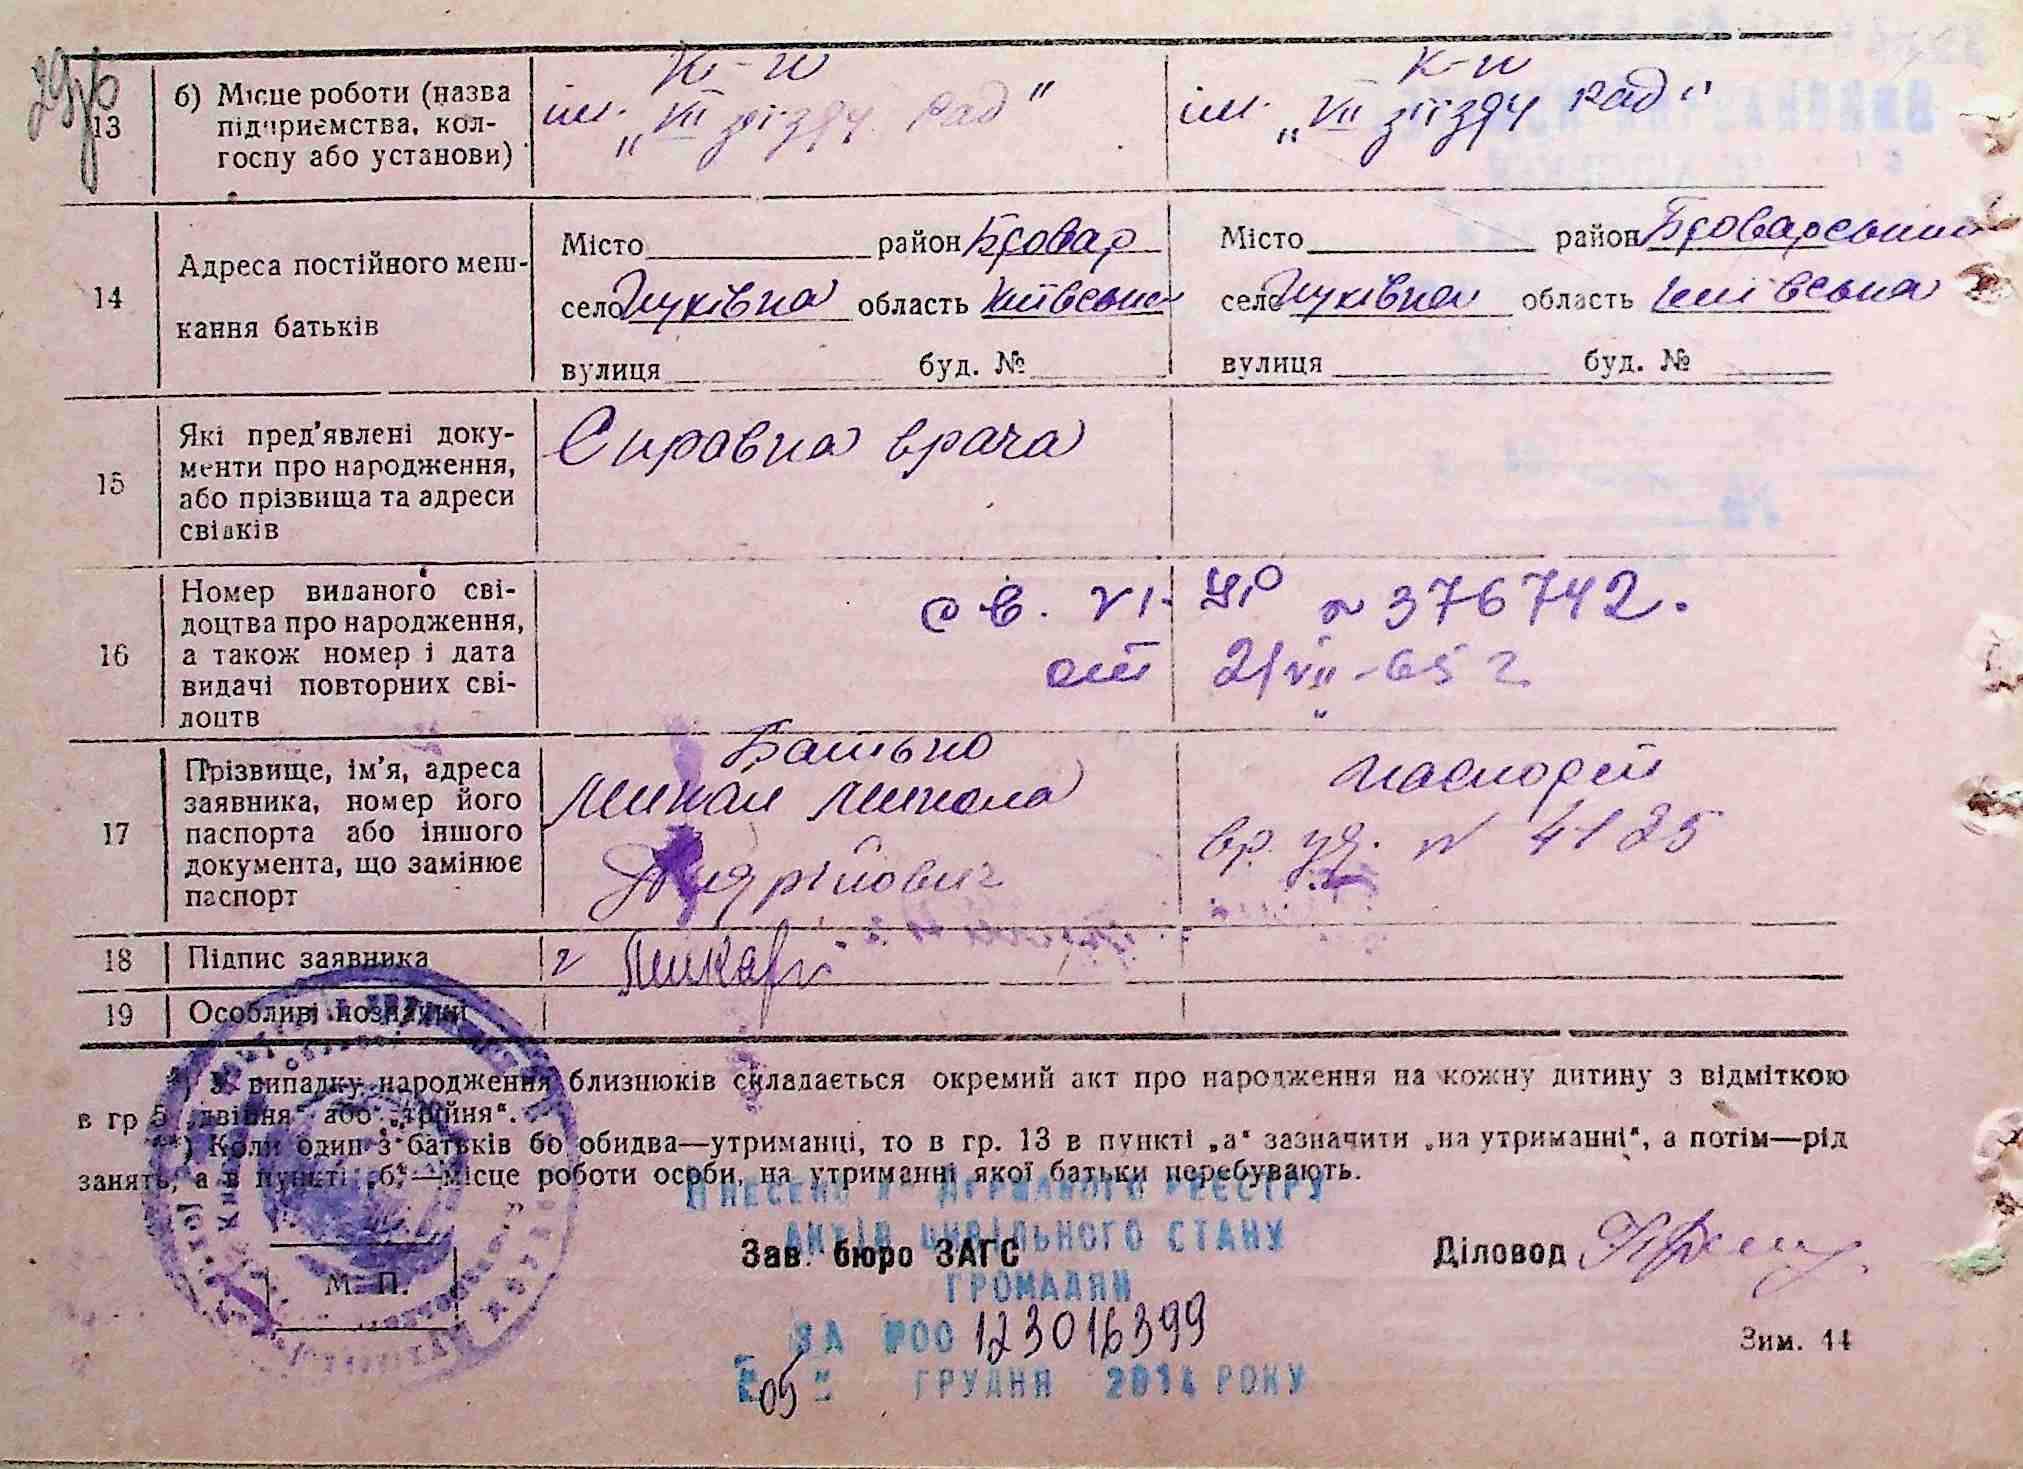 13 б) Місце роботи (назва підприємства, колгоспу або установи)
К-п К-п
ім. „VII зїзду рад" ім. „VII зїзду рад"
14 Адреса постійного мешкання батьків
Місто район Бровар Місто район Броварський
село область Київська село область Київська
вулиця буд. № вулиця буд. №
15 Які пред'явлені документи про народження, або прізвища та адреси свідків
Справка врача
16 Номер виданого свідоцтва про народження, а також номер і дата видачі повторних свідоцтв
св. VI-УР № 376742.
от 21/VII-65 г
17 Прізвище, ім'я, адреса заявника, номер його паспорта або іншого документа, що замінює паспорт
Батько паспорт
Микола вр. уд. № 4125
Андрійович
18 Підпис заявника
19 Особливі позначки
*) У випадку народження близнюків складається окремий акт про народження на кожну дитину з відміткою
в гр 5 „двійня" або „трійня".
**) Коли один з батьків бо обидва—утриманці, то в гр. 13 в пункті „а" зазначити „на утриманні", а потім—рід
занять, а в пункті „б"—місце роботи особи, на утриманні якої батьки перебувають.
ВНЕСЕНО ДО ДЕРЖАВНОГО РЕЄСТРУ
АКТІВ ЦИВІЛЬНОГО СТАНУ
Зав. бюро ЗАГС Діловод
ГРОМАДЯН
М. П.
ЗА №00 123016399
Зим. 14
„05" ГРУДНЯ 2014 РОКУ